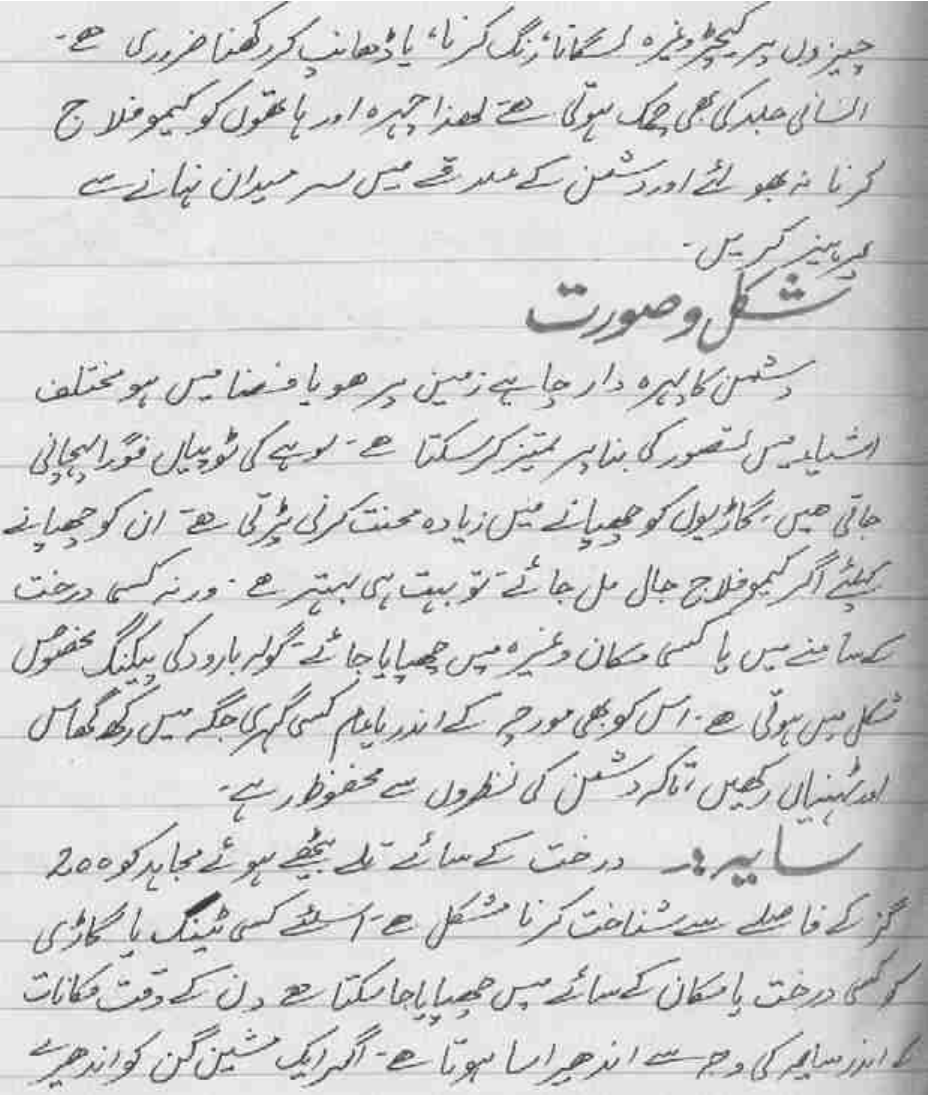 چیزوں پر کیچڑ وغیرہ لگانا، رنگ کرنا، یا ڈھانپ کر رکھنا ضروری ھے۔
انسانی جلد کی بھی چمک ہوتی ھے لھذا چہرہ اور ہاتھوں کو کیموفلاج
کرنا نہ بھولئے اور دشمن کے علاقے میں سر میدان نہانے سے
پرہیز کریں۔
شکل و صورت
دشمن کا پہرہ دار چاہے زمین پر ھو یا فضا میں ہو مختلف
اشیاء میں تصور کی بنا پر تمیز کر سکتا ھے۔ لوہے کی ٹوپیاں فوراً پہچانی
جاتی ھیں، گاڑیوں کو چھپانے میں زیادہ محنت کرنی پڑتی ھے۔ ان کو چھپانے
کیلئے اگر کیموفلاج جال مل جائے تو بہت ہی بہتر ھے۔ ورنہ کسی درخت
کے سامنے میں یا کسی مکان وغیرہ میں چھپایا جائے۔ گولہ بارود کی پیکنگ مخصوص
شکل میں ہوتی ھے۔ اس کو بھی مورچہ کے اندر یا عام کسی گہری جگہ میں رکھ گھاس
اور ٹہنیاں رکھیں، تاکہ دشمن کی نظروں سے محفوظ رہے۔
سایہ:۔ درخت کے سائے تلے بیٹھے ہوئے مجاہد کو 200
گز کے فاصلے سے شناخت کرنا مشکل ھے۔ اسلئے کسی ٹینک یا گاڑی
کو کسی درخت یا مکان کے سائے میں چھپایا جا سکتا ھے دن کے وقت مکانات
کے اندر سایہ کی وجہ سے اندھیرا سا ہوتا ھے۔ اگر ایک مشین گن کو اندھیرے